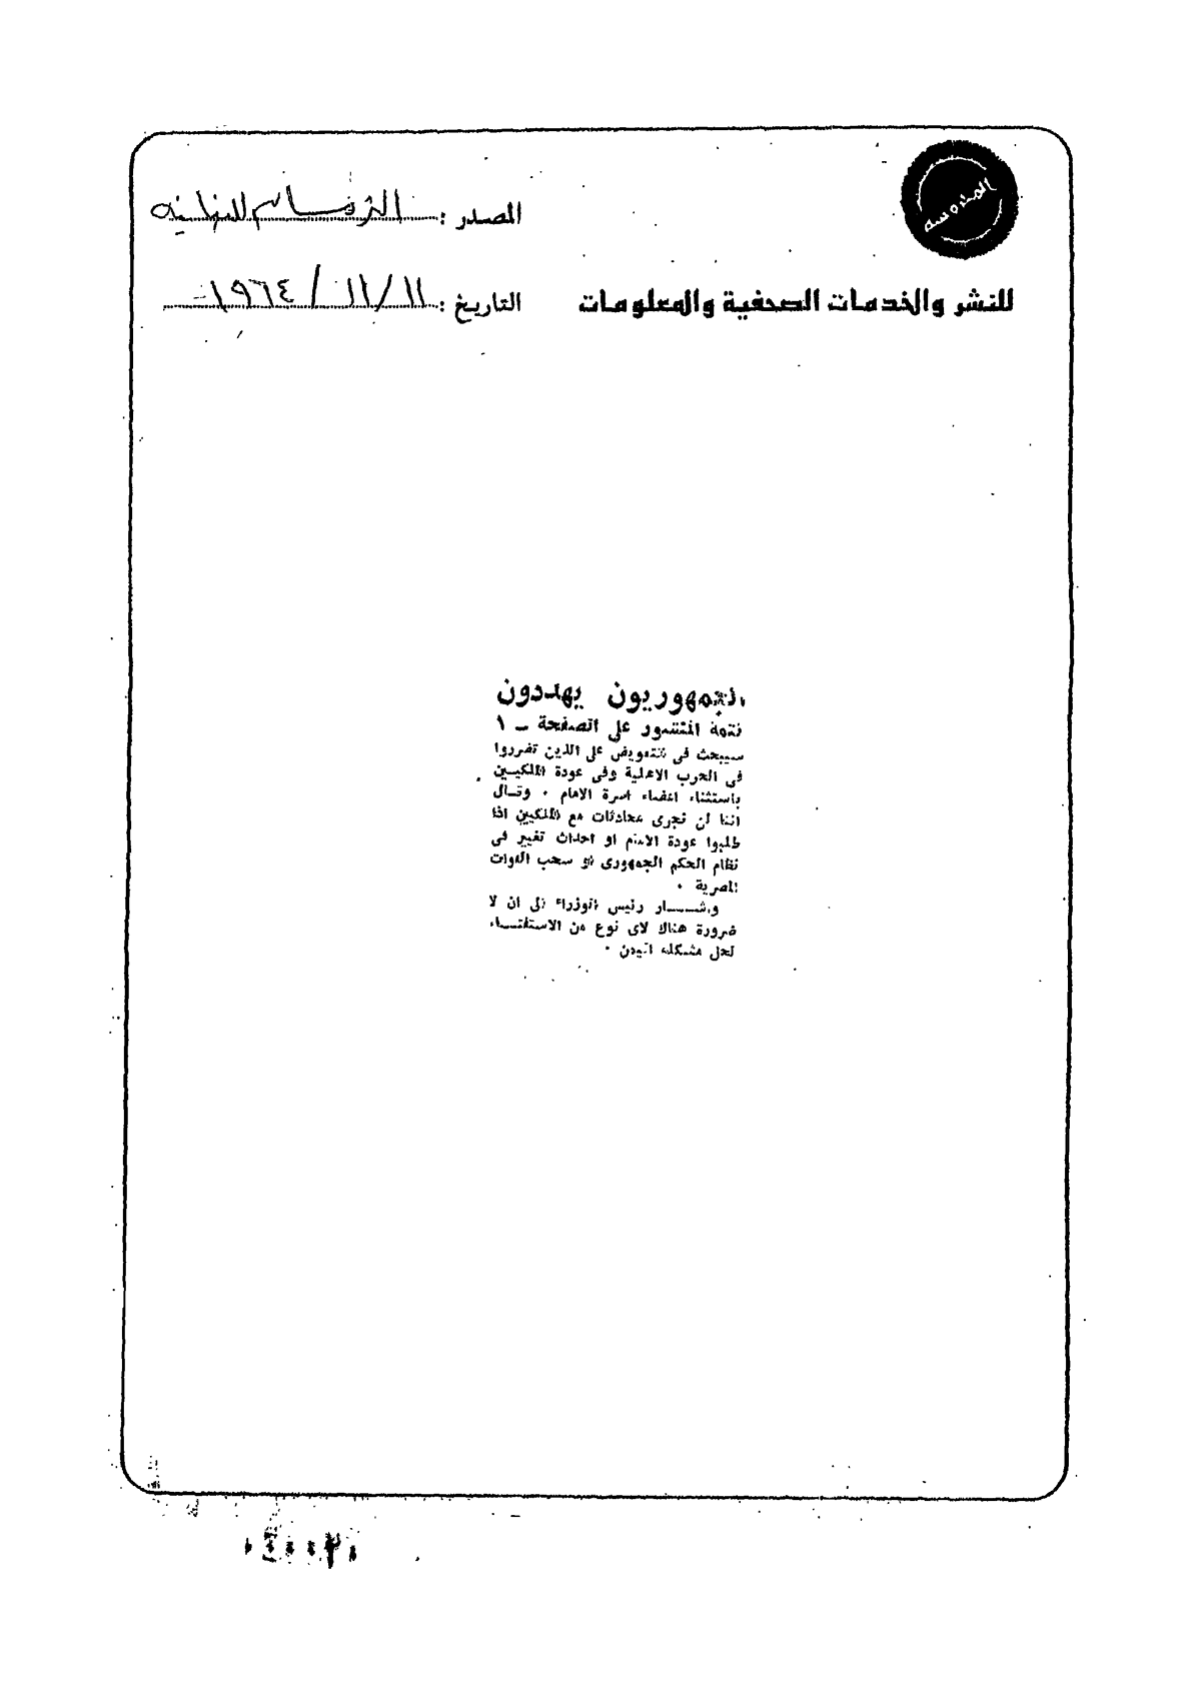 المدوسه
المصدر :
للنشر والخدمات الصحفية والمعلومات
التاريخ : ١١/ ١١/ ١٩٦٤
الجمهوريون يهددون
تتمة المنشور على الصفحة ـ ١
سيبحث في التعويض على الذين تضرروا
في الحرب الاهلية وفي عودة الملكيين
باستثناء اعضاء اسرة الامام . وقال
اننا لن نجرى محادثات مع الملكيين اذا
طلبوا عودة الامام او احداث تغيير في
نظام الحكم الجمهورى او سحب القوات
المصرية .
واشار رئيس الوزراء الى ان لا
ضرورة هناك لاى نوع من الاستفتاء
لحل مشكلة اليمن .